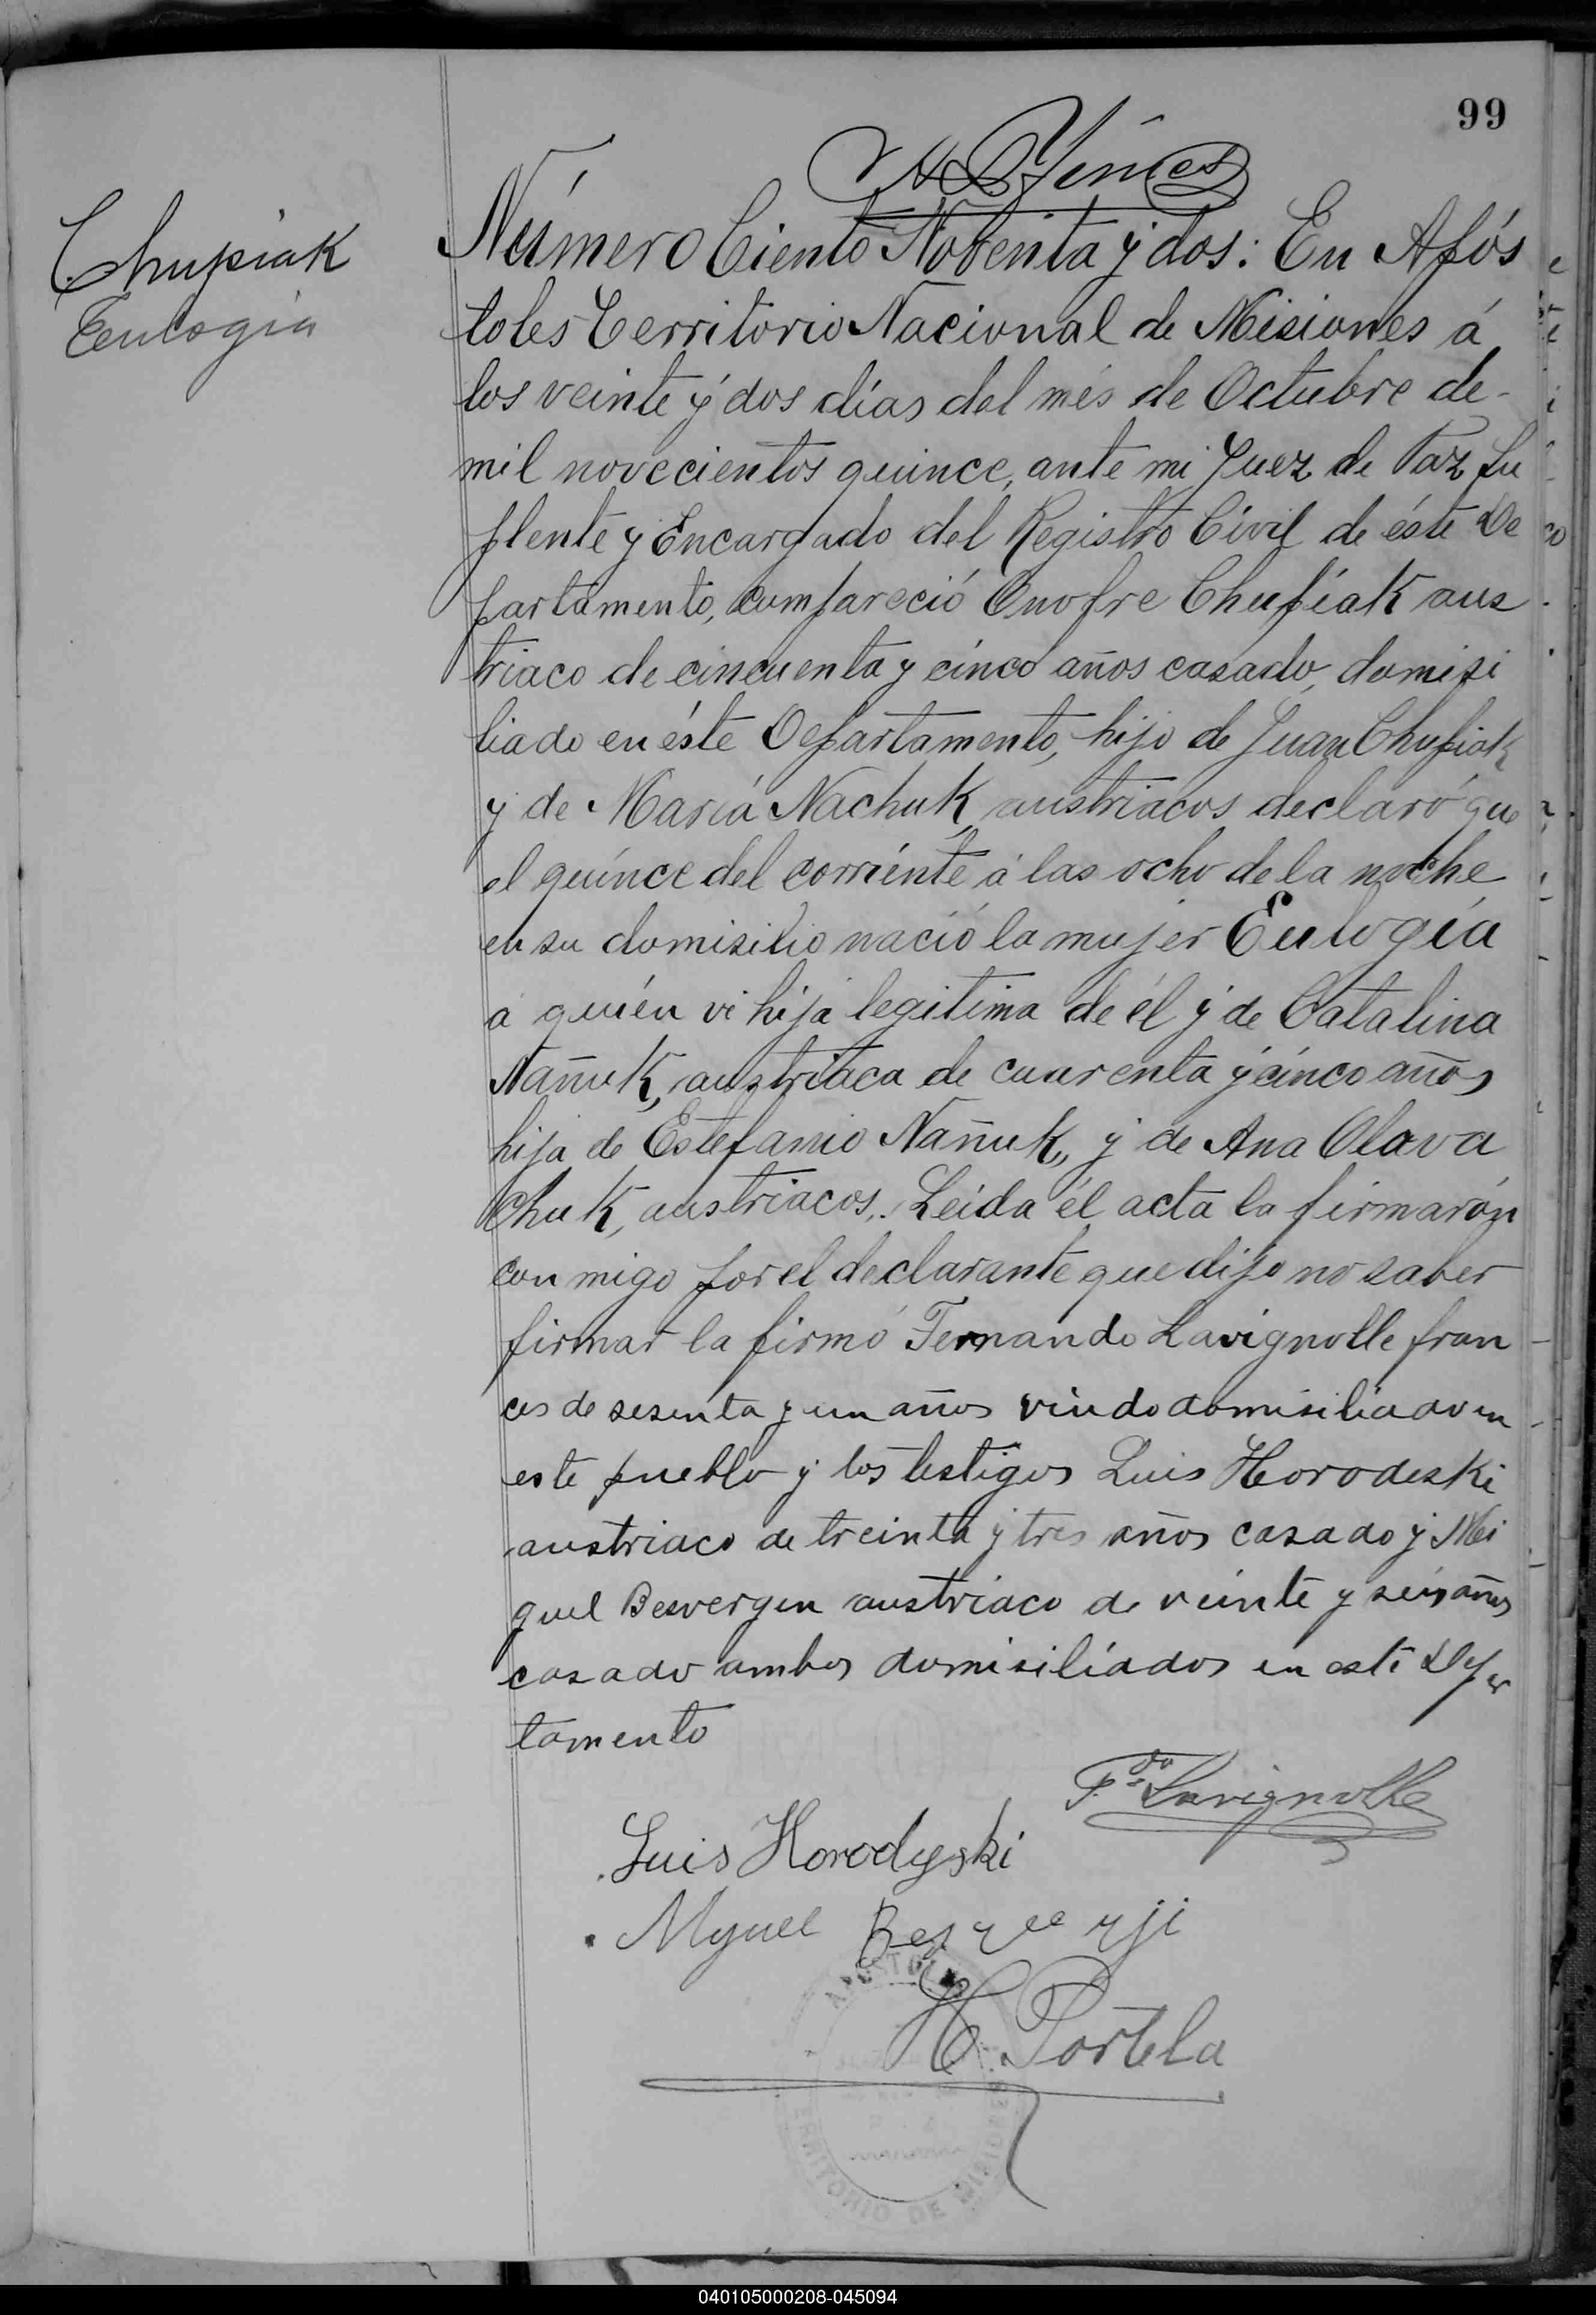 99
Chupiak
Eulogia
Número Ciento Noventa y dos: En Após
toles Territorio Nacional de Misiones á
los veinte y dos días del més de Octubre de-
mil novecientos quince, ante mi Juez de Paz Su
plente y Encargado del Registro Civil de éste De
partamento, compareció Onofre Chupiak aus
triaco de cincuenta y cinco años casado, domisi
liado en éste Departamento, hijo de Juan Chupiak
y de María Nachuk, austriacos declaró que
el quince del corriente á las ocho de la noche
en su domisilio nació la mujer Eulogia
a quién vi hija legitima de él y de Catalina
Nañuk, austriaca de cuarenta y cinco años
hija de Estefanio Nañuk, y de Ana Olava
chuk, austriacos,. Leida el acta la firmarón
con migo por el declarante que dijo no saber
firmar la firmó Fernando Lavignolle fran
ces de sesenta y un años viudo domisiliado en
este pueblo y los testigos Luis Horodeski
austriaco de treinta y tres años casado y Mi
guel Besvergen austriaco de veinte y seis años
casado ambos domisiliados en este Depar
tamento
F.do Lavignolle
Luis Horodyski
Myguel
H. Portela
APOSTOLES
TERRITORIO DE MISIONES
040105000208-045094